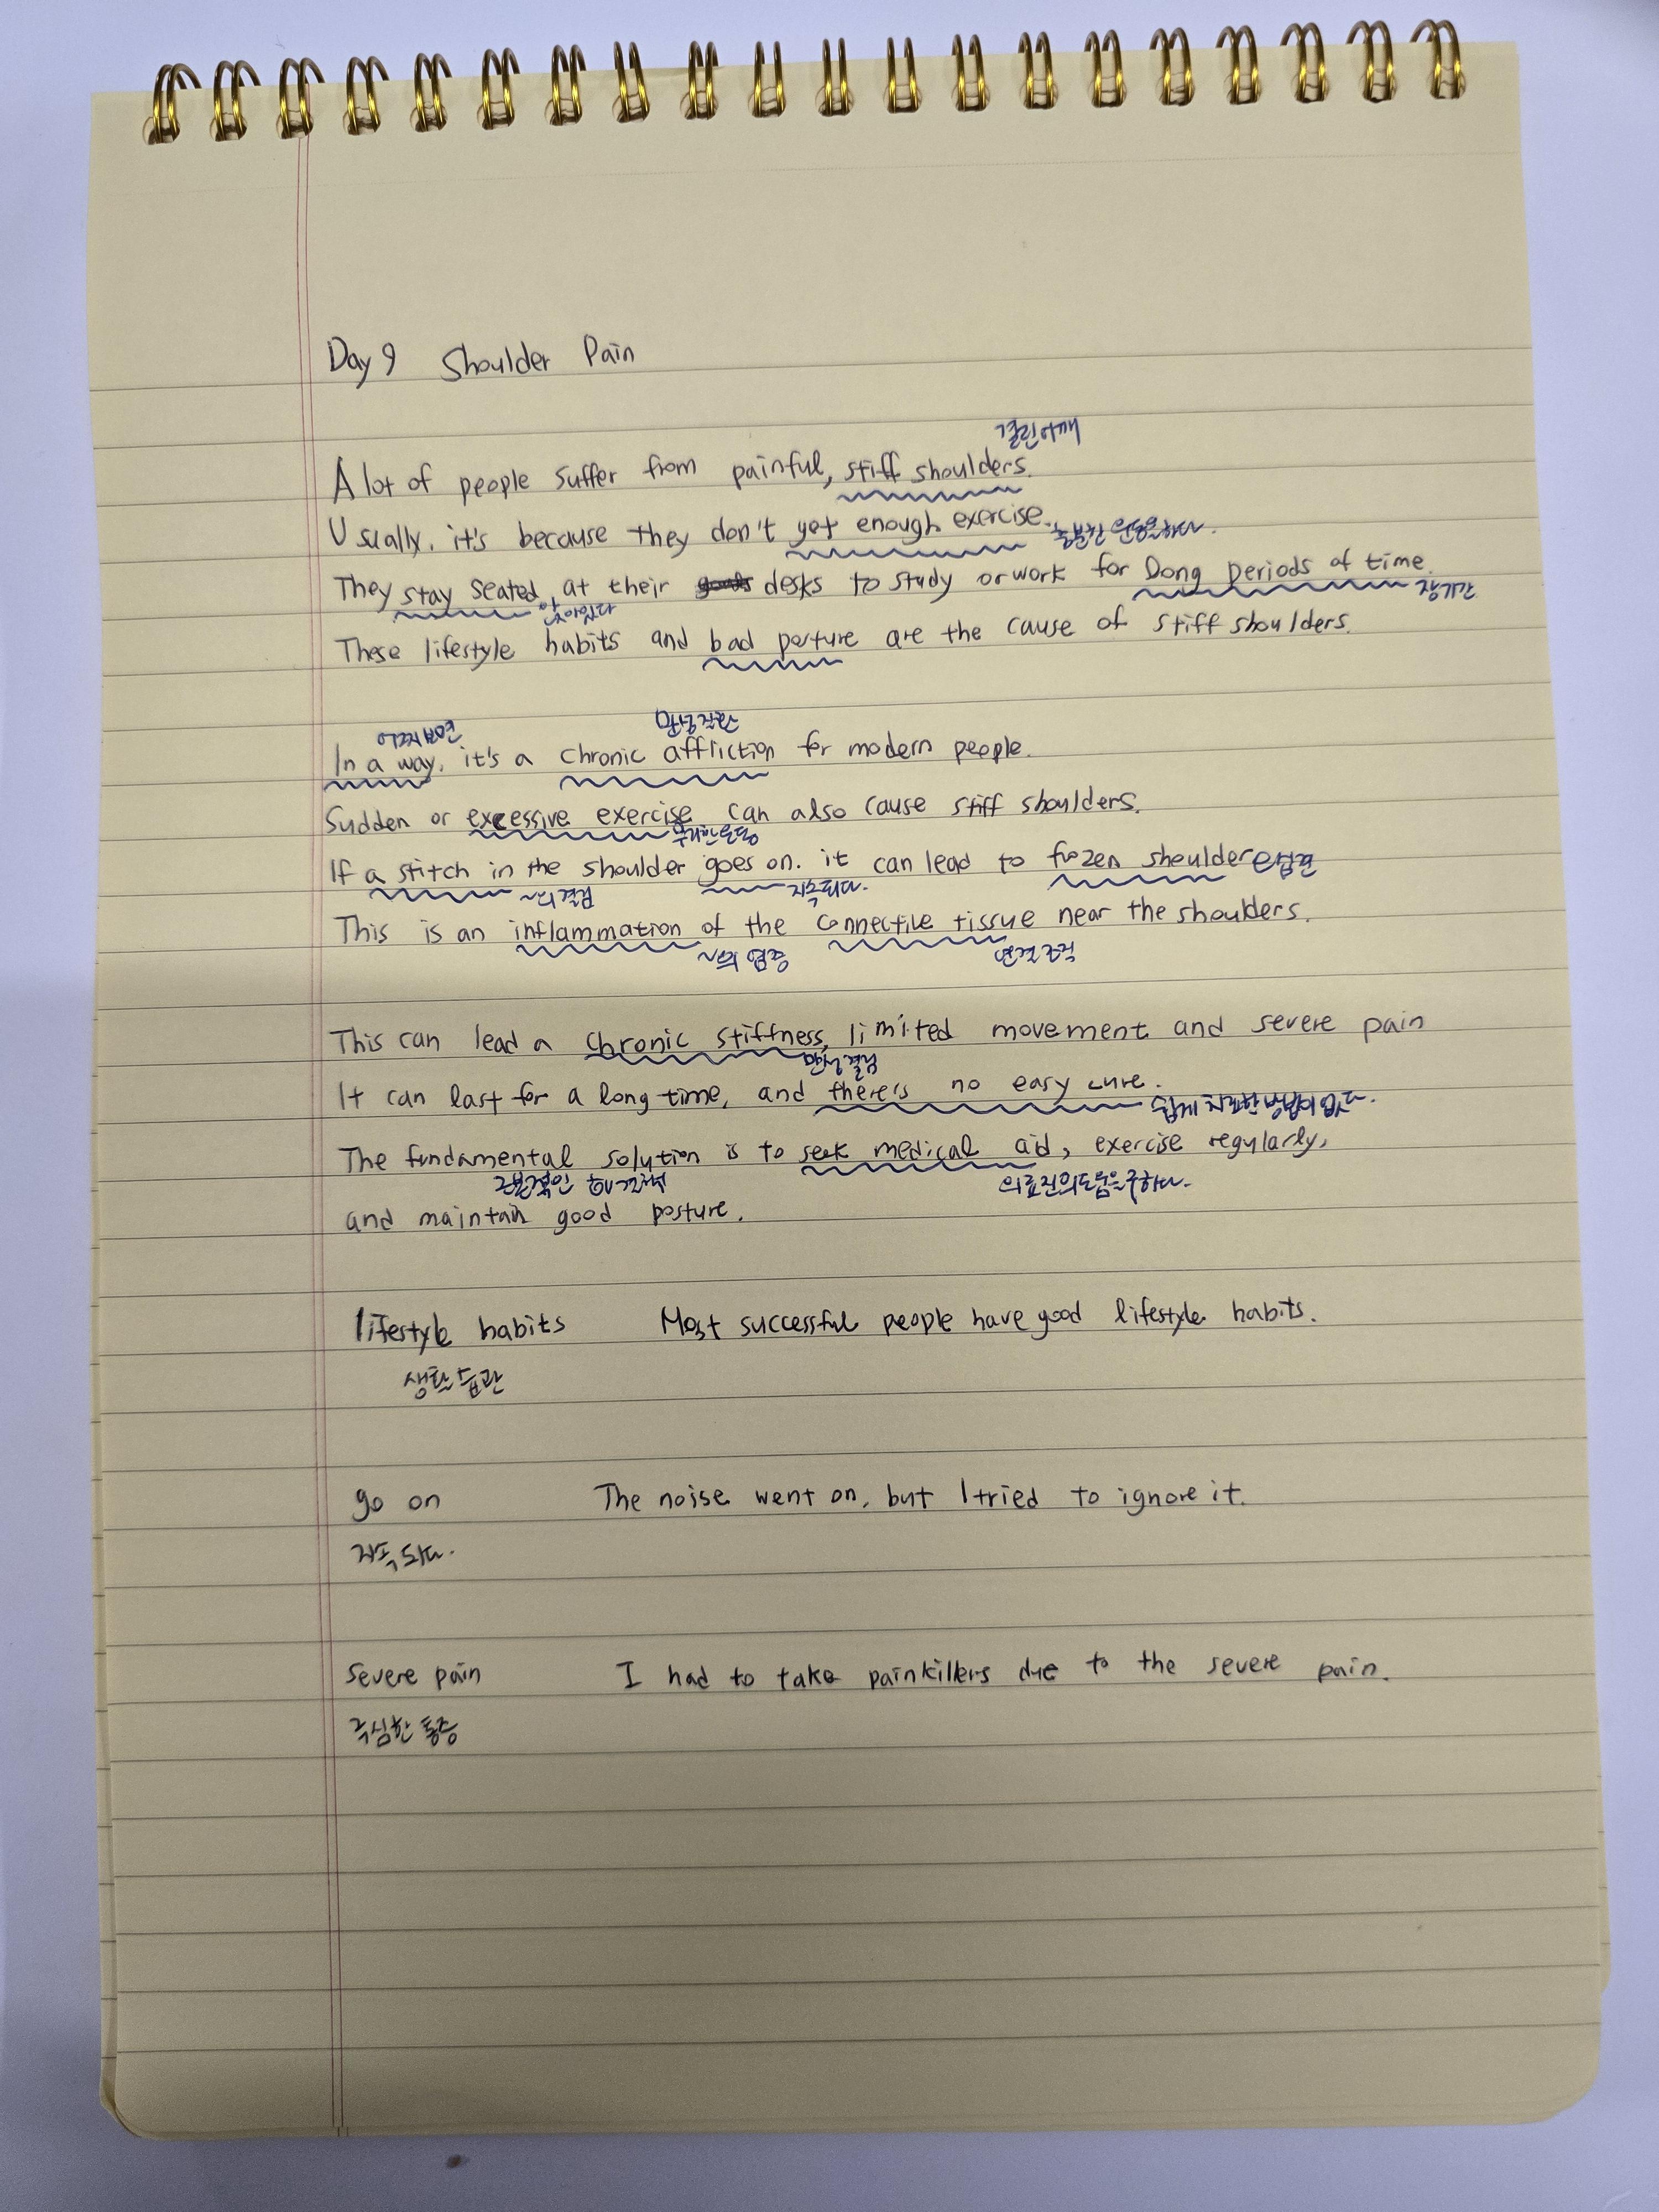 Day 9 Shoulder Pain
결린어깨
A lot of people suffer from painful, stiff shoulders.
Usually, it's because they don't get enough exercise.
충분한 운동을하다.
They stay seated at their desks to study or work for long periods of time.
장시간
These lifestyle habits and bad posture are the cause of stiff shoulders.
어떤면에선
In a way, it's a chronic affliction for modern people.
Sudden or excessive exercise can also cause stiff shoulders.
무리한운동
If a stitch in the shoulder goes on. it can lead to frozen shoulder
~의결림 지속되다.
This is an inflammation of the connective tissue near the shoulders.
~의 염증 연결조직
This can lead a chronic stiffness, limited movement and severe pain
만성결림
It can last for a long time, and there's no easy cure.
쉽게 치료할방법이없다.
The fundamental solution is to seek medical aid, exercise regularly,
근본적인 해결책 의료진의도움을구하다.
and maintain good posture.
lifestyle habits Most successful people have good lifestyle habits.
생활습관
go on The noise went on, but I tried to ignore it.
지속되다.
severe pain I had to take painkillers due to the severe pain.
극심한 통증